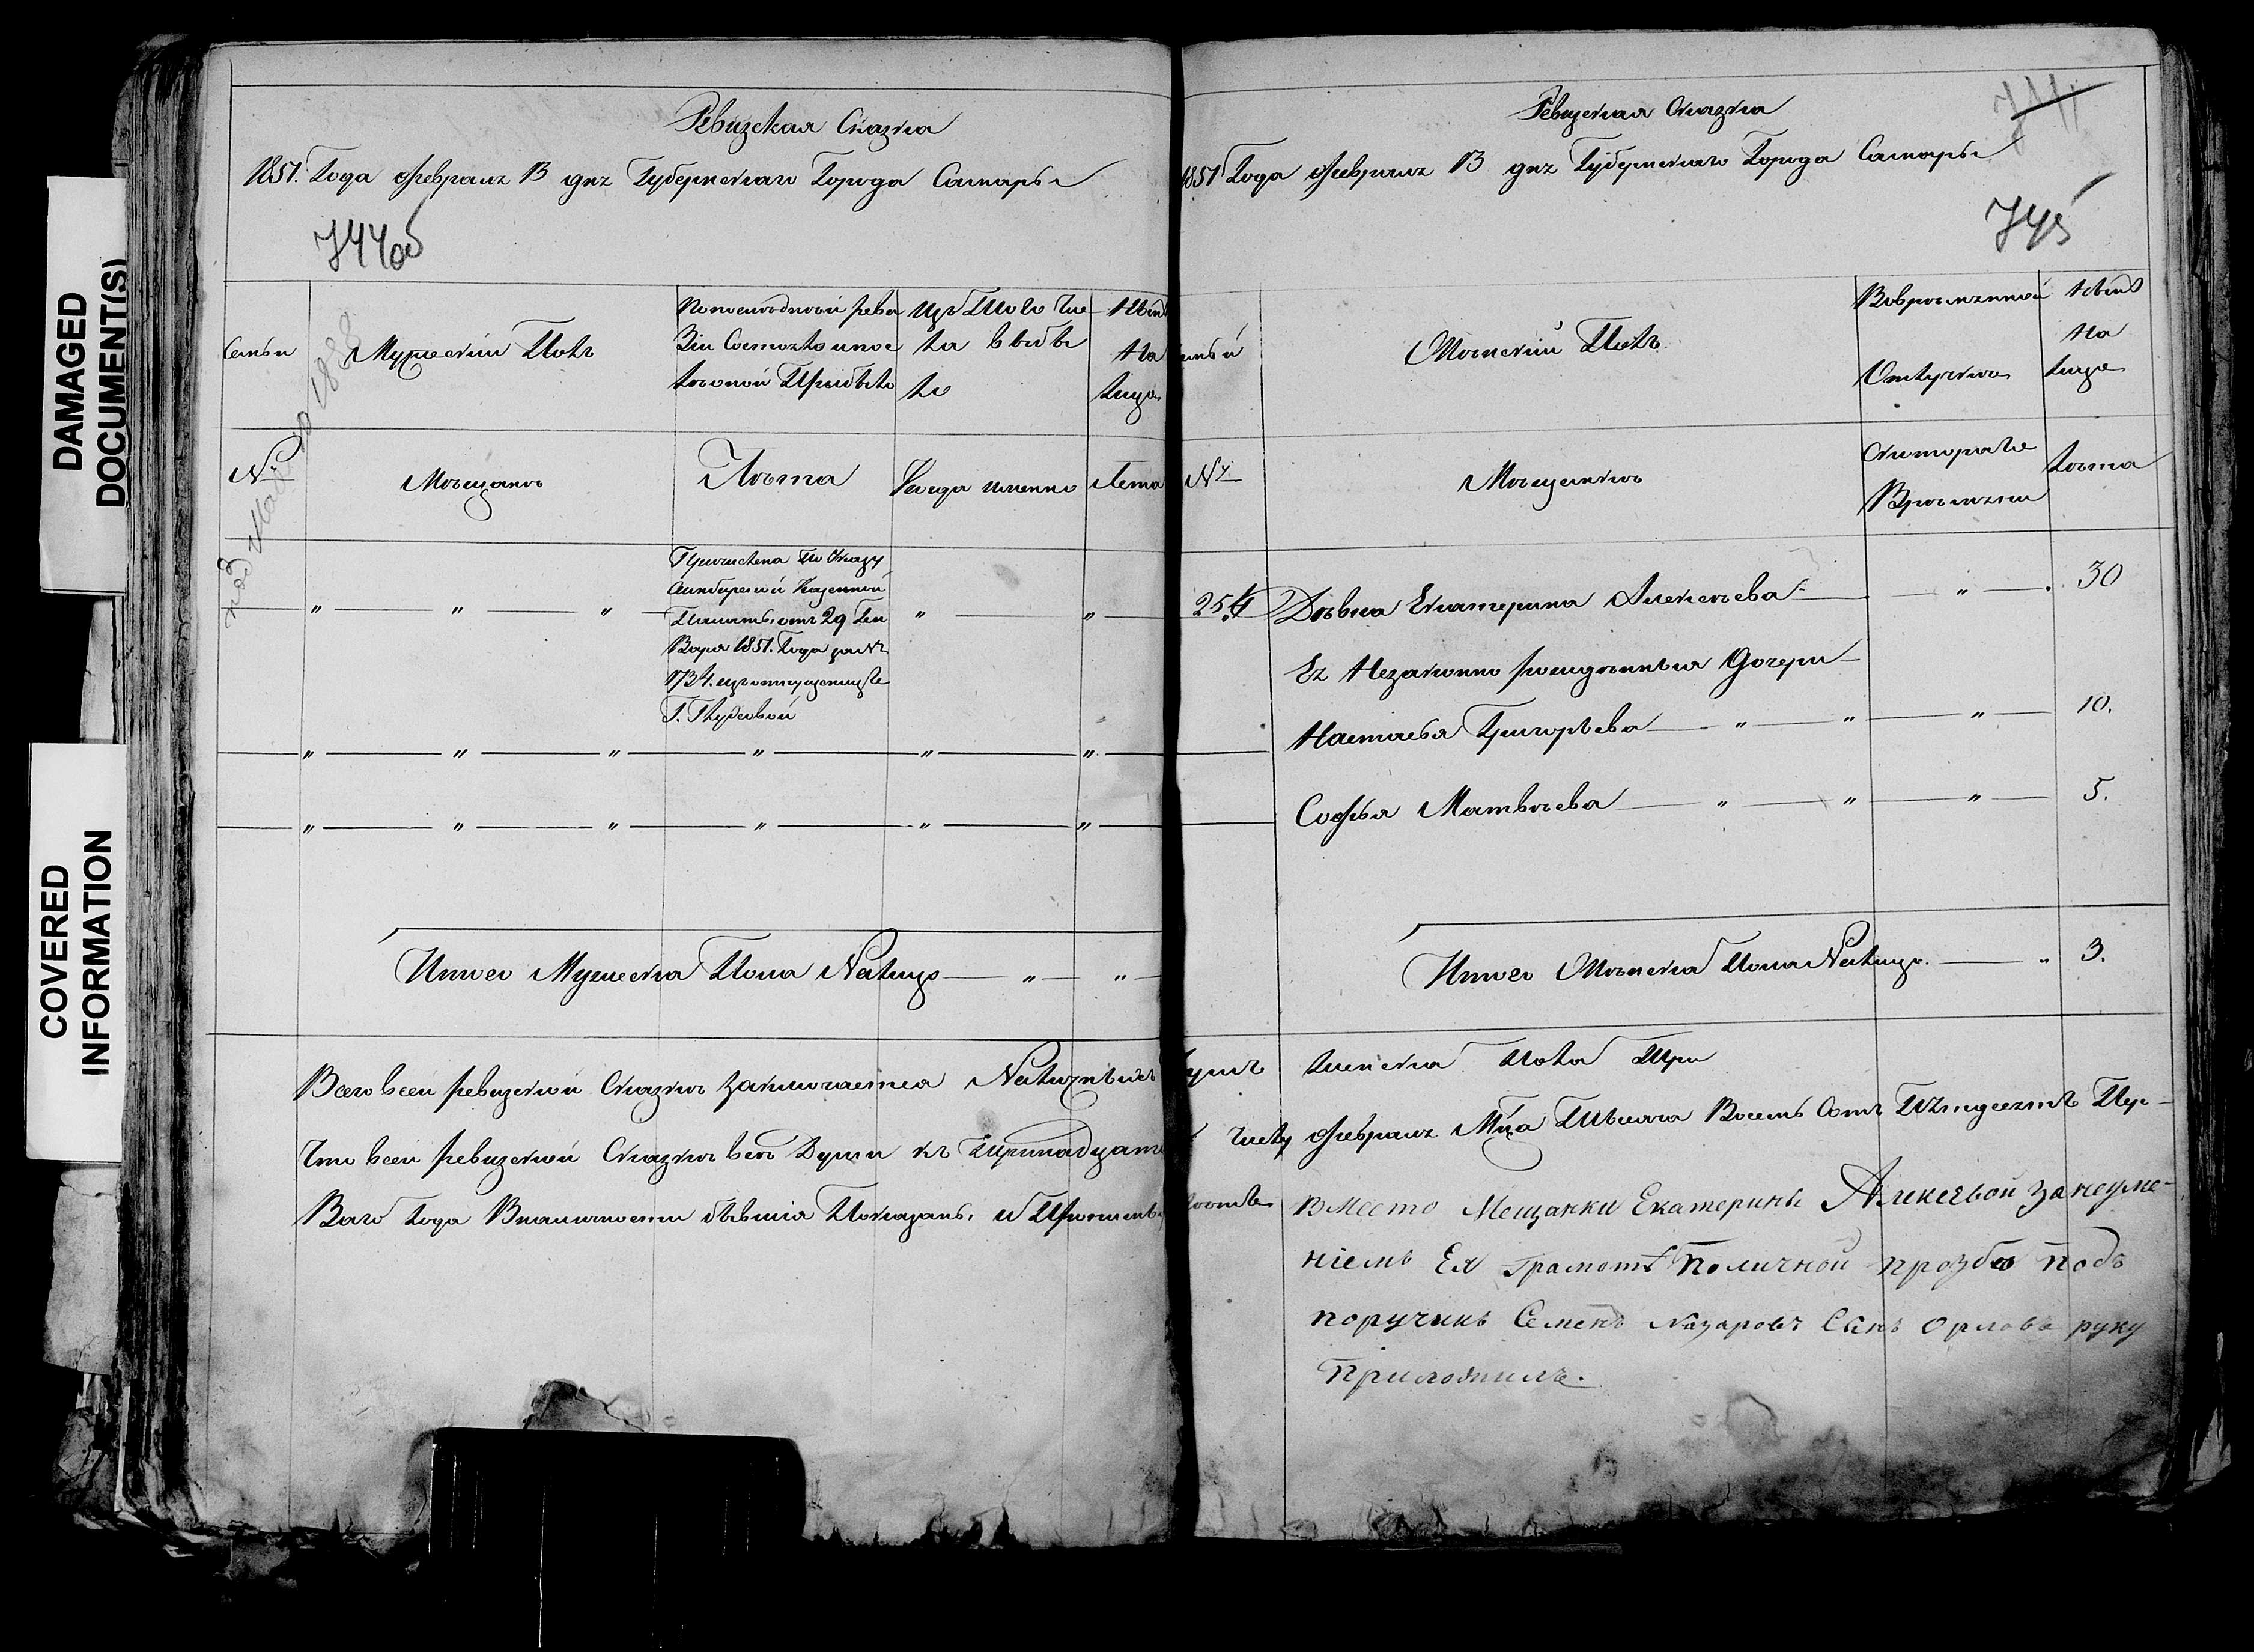 DAMAGED
DOCUMENT(S)
COVERED
INFORMATION
Ревизская Сказка
1851. Года Февраля 13 дня Губернскаго Города Самары
744об
Семьи
Мужескій Полъ
По последней реви
зіи Состояло и пос
ле оной Прибыло
Изъ Того Чис
ла выбы
ло
Ныне
На
лицо
№
Мещане
Лета
Когда именно
Лета
Причислена По Указу
Симбирской Казенной
Палаты отъ 29 Ген
варя 1851. Года за №
1734. изъ отпущенницъ
Г.
Итого Мужеска Пола Налицо
Всего въ сей ревизской Сказке заключается Наличныхъ
Что въ сей ревизской Сказке все Души къ Тринадцато
Ваго Года Вналичности бывшія Показаны, и Прописныхъ
Ревизская Сказка
1851 Года Февраля 13 дня Губернскаго Города Самары
745
Женскій Полъ
Вовременной
Отлучке
Ныне
На
лицо
№
Мещанки
Скоторого
Времени
Лета
254 Девка Екатерина Алексеева 30
Ея Незаконно рожденныя Дочери
Настасья Григорьева 10.
Софья Матвеева 5.
Итого Женска Пола Налицо. 3.
душъ женска Пола Три
числу Февраля Мца Тысяча Восемь Сотъ Пятдесятъ Пер-
Вместо Мещанки Екатерины Алексевой За неуме-
ніемъ Ея грамоте По личной прозбе Подъ
поручикъ Семенъ Назаровъ Сынъ Орловъ руку
Приложилъ.